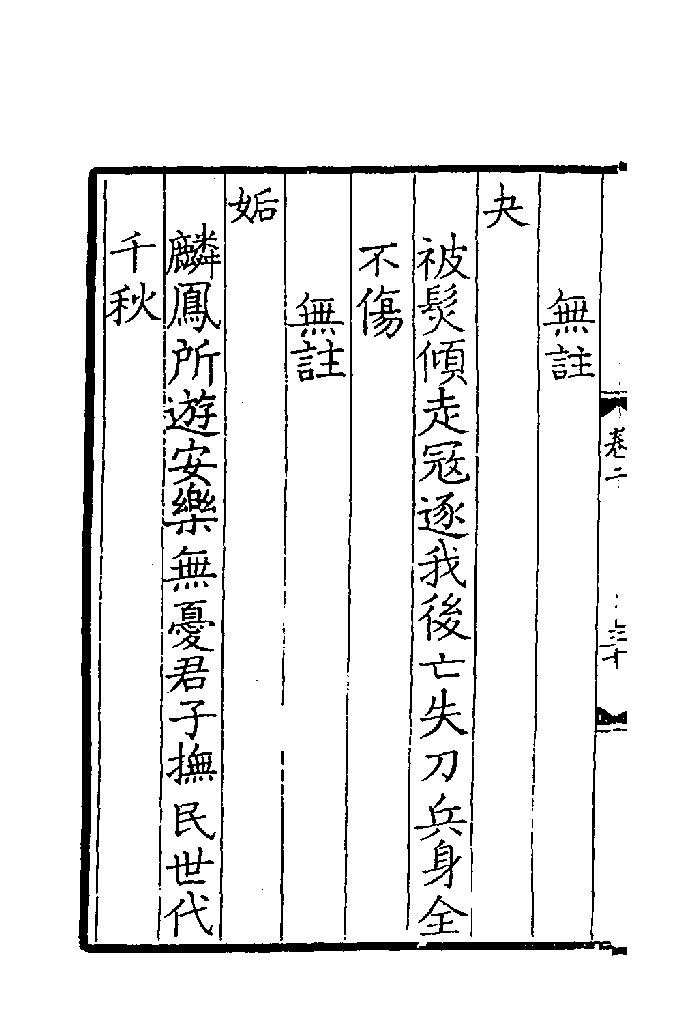 無註
夬
被髮傾走冦逐我後亡失刀兵身全
不傷
無註
姤
麟鳳所遊安樂無憂君子撫民世代
千秋
卷二